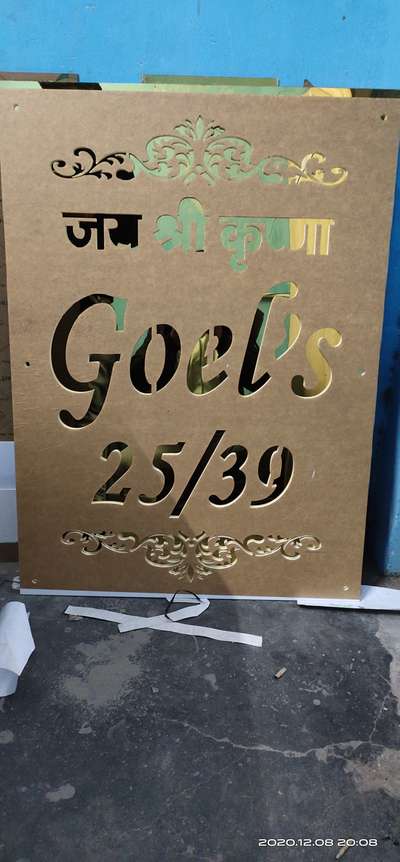 जय श्री कृष्णा
Goel's
25/39
2020.12.08 20:08